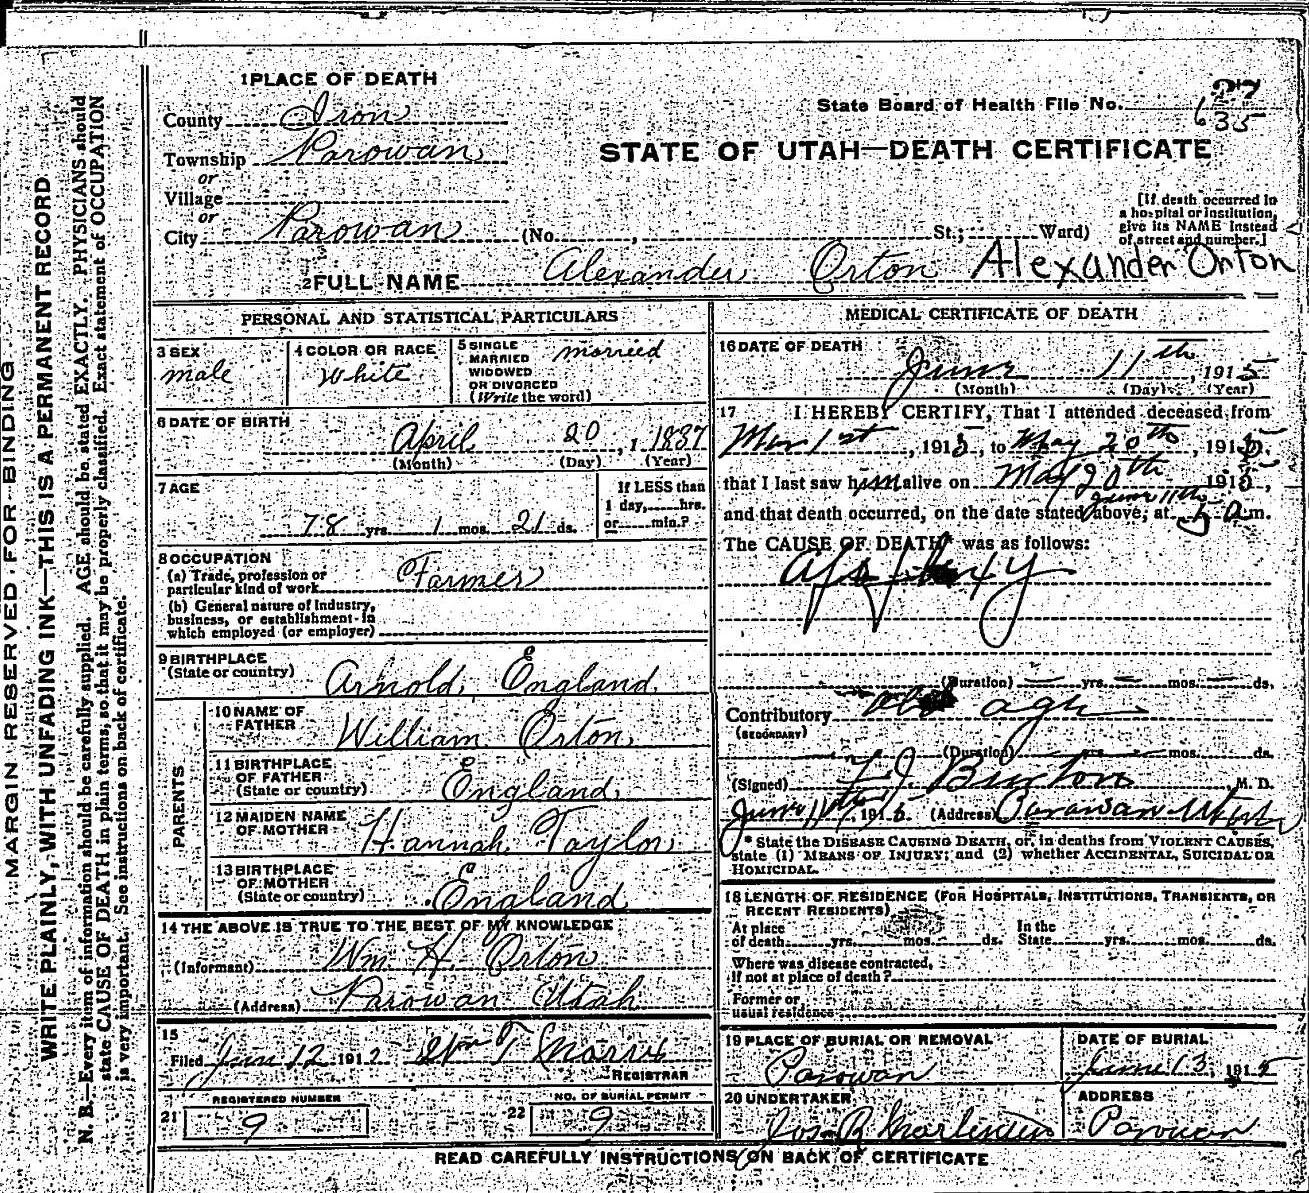 MARGIN RESERVED FOR BINDING
WRITE PLAINLY, WITH UNFADING INK—THIS IS A PERMANENT RECORD
N. B.—Every item of information should be carefully supplied. AGE should be stated EXACTLY. PHYSICIANS should
state CAUSE OF DEATH in plain terms, so that it may be properly classified. Exact statement of OCCUPATION
is very important. See instructions on back of certificate.
1 PLACE OF DEATH
County Iron
Township Parowan
or
Village
or
City Parowan (No. , St.; Ward)
State Board of Health File No. 635
27
STATE OF UTAH—DEATH CERTIFICATE
[If death occurred in
a hospital or institution,
give its NAME instead
of street and number.]
2 FULL NAME Alexander Orton Alexander Orton
PERSONAL AND STATISTICAL PARTICULARS
3 SEX
male
4 COLOR OR RACE
White
5 SINGLE
MARRIED
WIDOWED
OR DIVORCED
(Write the word)
married
6 DATE OF BIRTH
April 20, 1 1837
(Month) (Day) (Year)
7 AGE
78 yrs. 1 mos. 21 ds.
If LESS than
1 day, hrs.
or min.?
8 OCCUPATION
(a) Trade, profession or
particular kind of work Farmer
(b) General nature of industry,
business, or establishment in
which employed (or employer)
9 BIRTHPLACE
(State or country) Arnold, England
PARENTS
10 NAME OF
FATHER William Orton
11 BIRTHPLACE
OF FATHER
(State or country) England
12 MAIDEN NAME
OF MOTHER Hannah Taylor
13 BIRTHPLACE
OF MOTHER
(State or country) England
14 THE ABOVE IS TRUE TO THE BEST OF MY KNOWLEDGE
(Informant) Wm. H. Orton
(Address) Parowan Utah
15
Filed Jun 12 1912 Wm T Morris
REGISTRAR
21 REGISTERED NUMBER
9
22 NO. OF BURIAL PERMIT
9
MEDICAL CERTIFICATE OF DEATH
16 DATE OF DEATH
June 11th, 1915
(Month) (Day) (Year)
17 I HEREBY CERTIFY, That I attended deceased from
Mar 1st, 1915, to May 20th, 1915
that I last saw him alive on May 20th 1915,
june 11th
and that death occurred, on the date stated above, at 5 a m.
The CAUSE OF DEATH* was as follows:
(Duration) yrs. mos. ds.
Contributory old age
(SECONDARY)
(Duration) yrs. mos. ds.
(Signed) Burton, M. D.
June 11th, 1915. (Address) Parowan Utah
* State the DISEASE CAUSING DEATH, or, in deaths from VIOLENT CAUSES,
state (1) MEANS OF INJURY; and (2) whether ACCIDENTAL, SUICIDAL OR
HOMICIDAL.
18 LENGTH OF RESIDENCE (FOR HOSPITALS, INSTITUTIONS, TRANSIENTS, OR
RECENT RESIDENTS)
At place
of death yrs. mos. ds.
In the
State yrs. mos. ds.
Where was disease contracted,
if not at place of death?
Former or
usual residence
19 PLACE OF BURIAL OR REMOVAL
Parowan
DATE OF BURIAL
June 13, 1915
20 UNDERTAKER
Jos. R.
ADDRESS
Parowan
READ CAREFULLY INSTRUCTIONS ON BACK OF CERTIFICATE